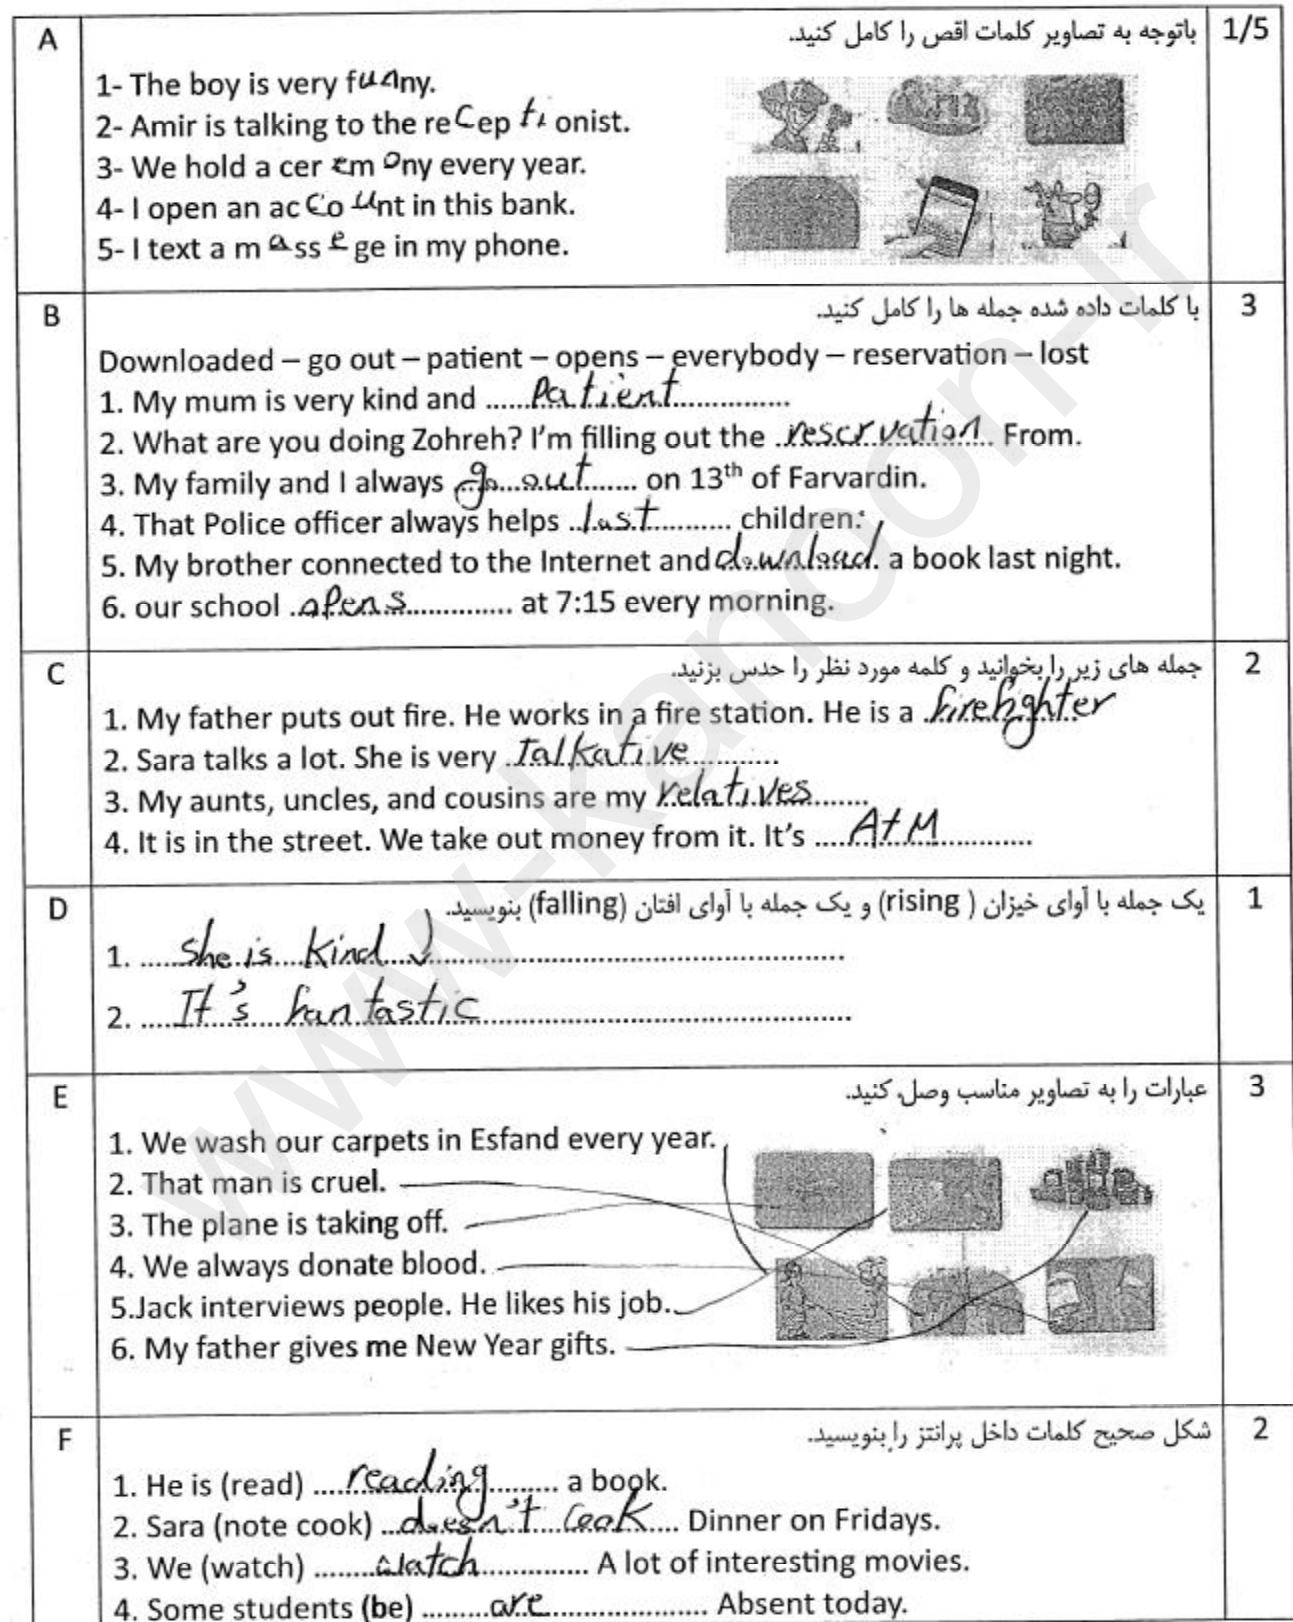 A
باتوجه به تصاویر کلمات اقص را کامل کنید.
1/5
1- The boy is very funny.
2- Amir is talking to the receptionist.
3- We hold a cer em ony every year.
4- I open an ac co unt in this bank.
5- I text a m a ss e ge in my phone.
B
با کلمات داده شده جمله ها را کامل کنید.
3
Downloaded – go out – patient – opens – everybody – reservation – lost
1. My mum is very kind and ...... patient ...............
2. What are you doing Zohreh? I'm filling out the .reservation. From.
3. My family and I always go out ...... on 13th of Farvardin.
4. That Police officer always helps ..lost.......... children.
5. My brother connected to the Internet and download. a book last night.
6. our school .opens.............. at 7:15 every morning.
C
جمله های زیر را بخوانید و کلمه مورد نظر را حدس بزنید.
2
1. My father puts out fire. He works in a fire station. He is a firefighter
2. Sara talks a lot. She is very .Talkative...........
3. My aunts, uncles, and cousins are my relatives.......
4. It is in the street. We take out money from it. It's .... AtM ............
D
یک جمله با آوای خیزان ( rising) و یک جمله با آوای افتان (falling) بنویسید.
1
1. ..... She is kind ..................................................
2. ..... It's fantastic ..................................................
E
عبارات را به تصاویر مناسب وصل کنید.
3
1. We wash our carpets in Esfand every year.
2. That man is cruel.
3. The plane is taking off.
4. We always donate blood.
5.Jack interviews people. He likes his job.
6. My father gives me New Year gifts.
F
شکل صحیح کلمات داخل پرانتز را بنویسید.
2
1. He is (read) .... reading ......... a book.
2. Sara (note cook) ..doesn't cook.... Dinner on Fridays.
3. We (watch) ........watch............. A lot of interesting movies.
4. Some students (be) .........are.................... Absent today.
www-kanoon-ir